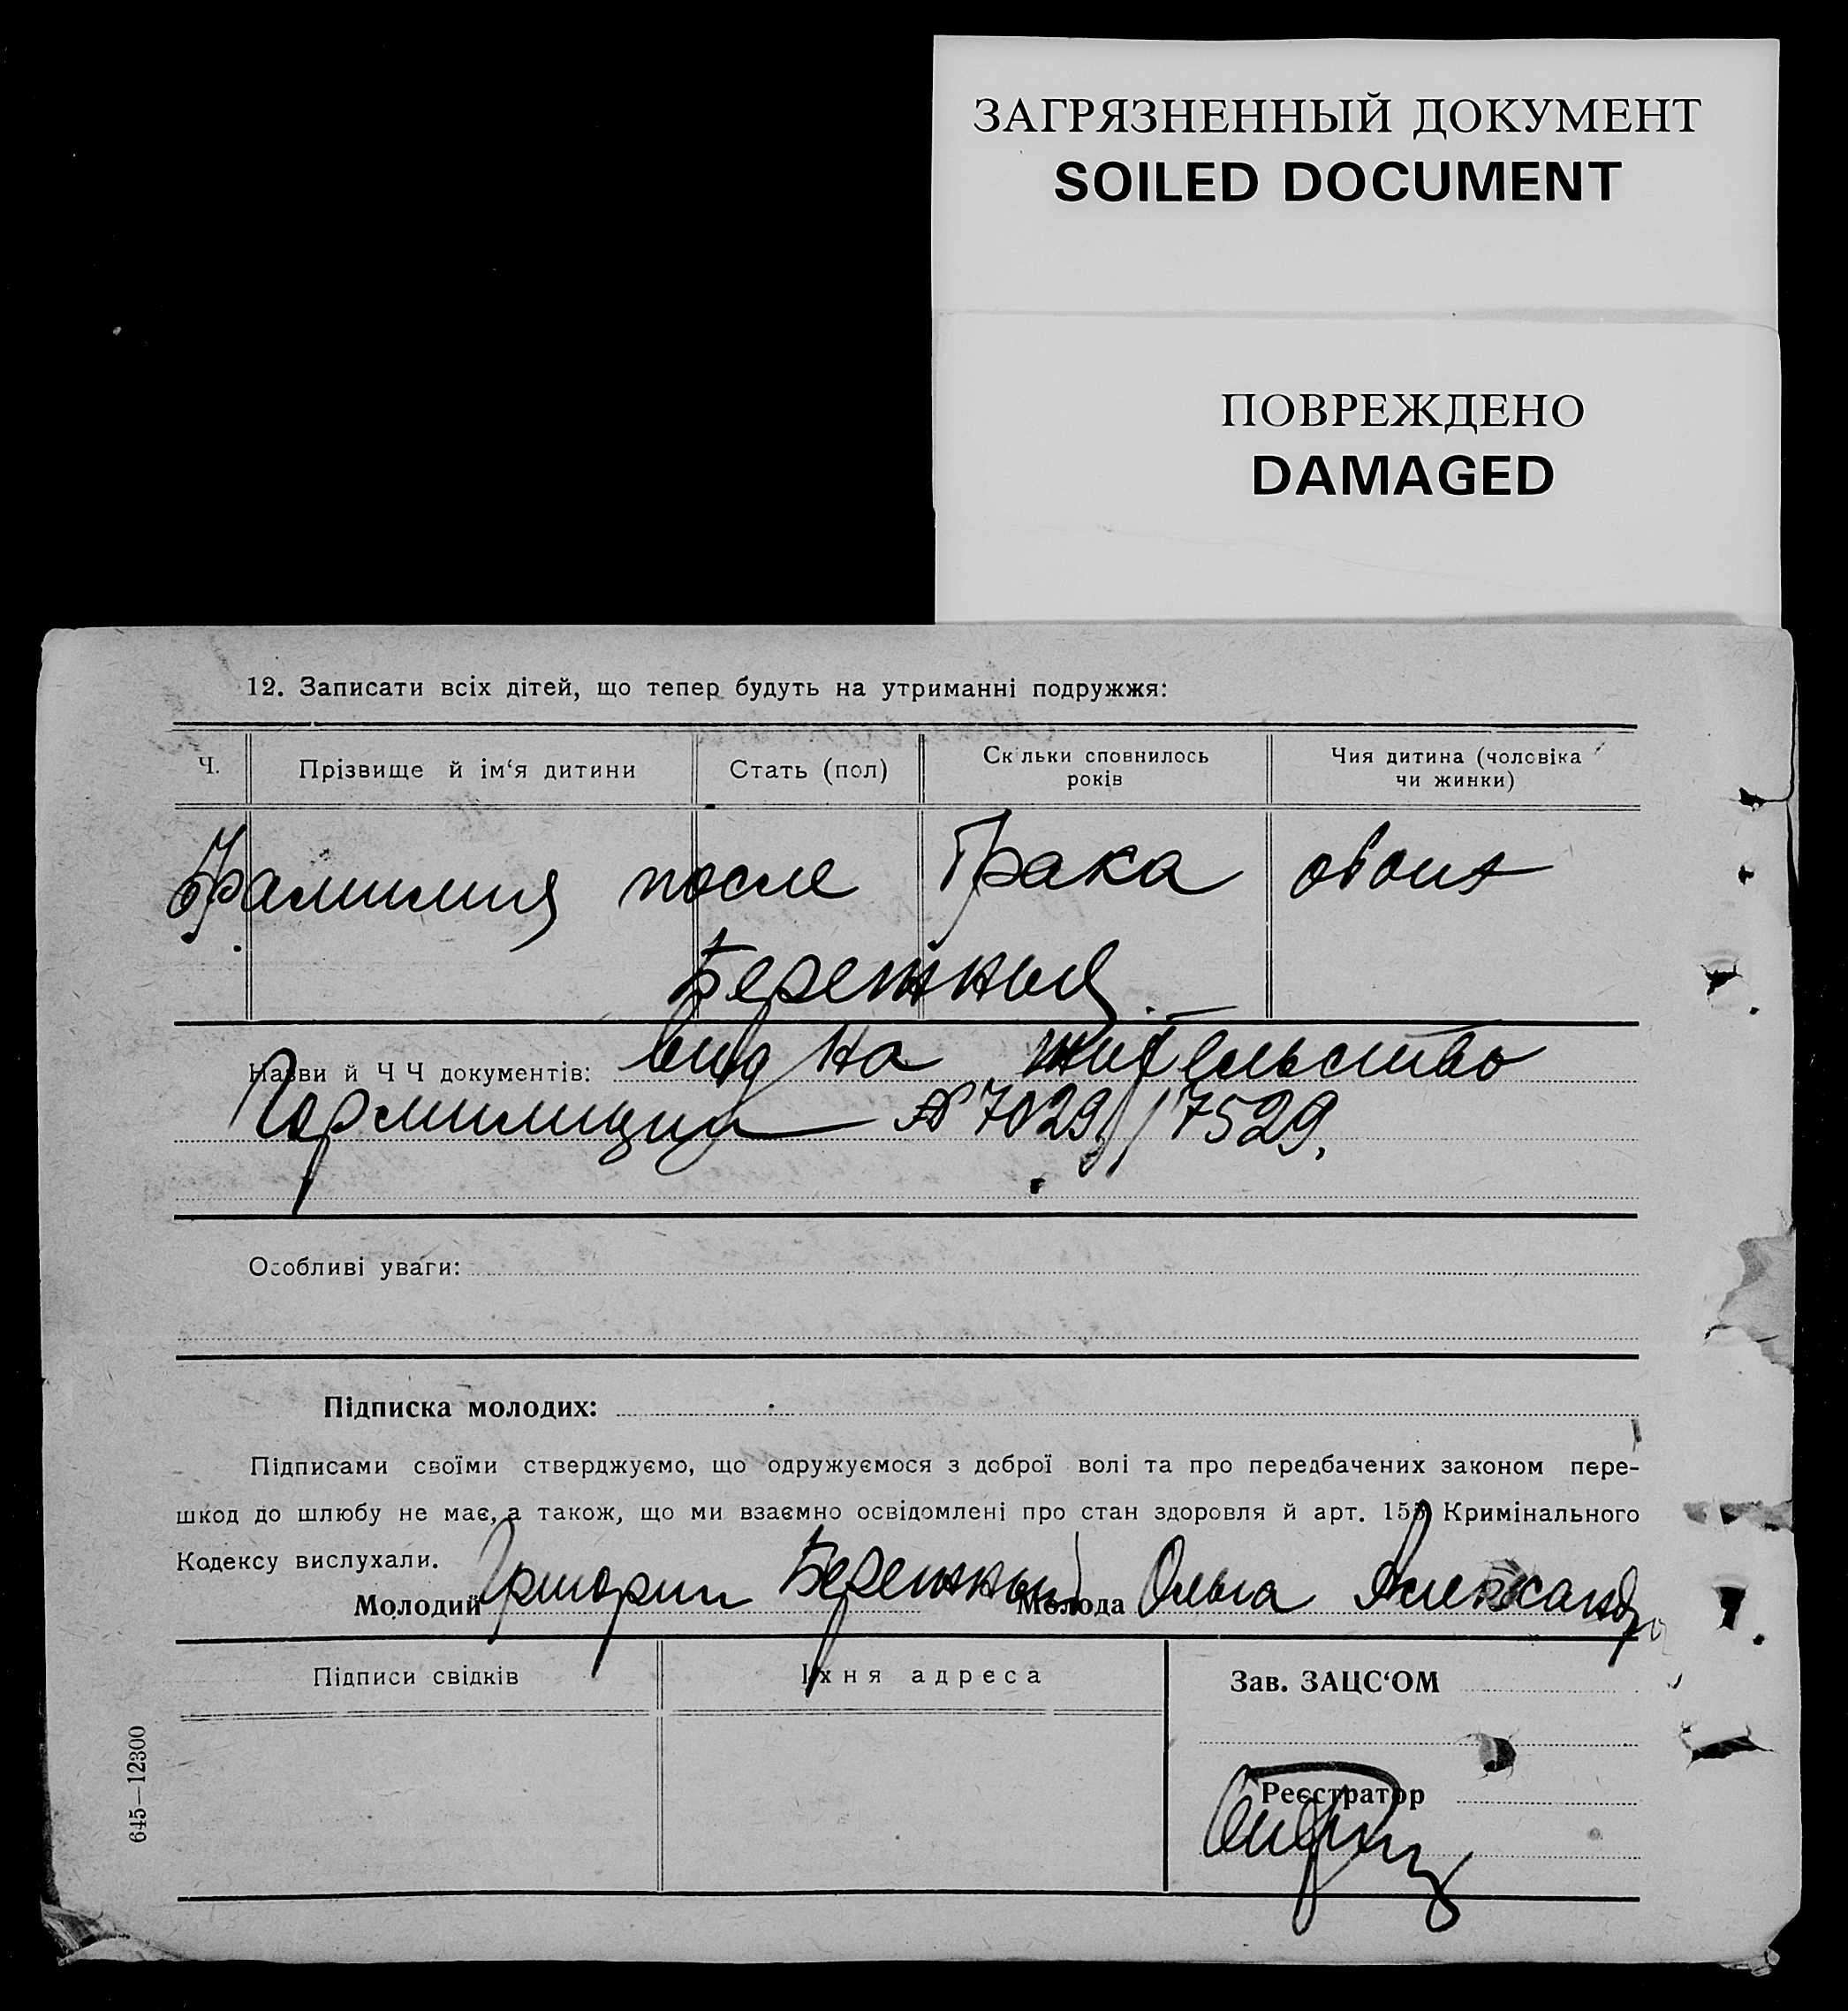 ЗАГРЯЗНЕННЫЙ ДОКУМЕНТ
SOILED DOCUMENT
ПОВРЕЖДЕНО
DAMAGED
12. Записати всіх дітей, що тепер будуть на утриманні подружжя:
Ч. Прізвище й ім‘я дитини Стать (пол) Скільки сповнилось років Чия дитина (чоловіка чи жинки)
Фамилия после брака обоих
Бережный
Назви й Ч Ч документів: вид на жительство
Гормилиции № 7029/17529.
Особливі уваги:
Підписка молодих:
Підписами своїми стверджуємо, що одружуємося з доброї волі та про передбачених законом пере-
шкод до шлюбу не має, а також, що ми взаємно освідомлені про стан здоровля й арт. 155 Кримінального
Кодексу вислухали.
Молодий Григорий Бережный Молода Ольга
Підписи свідків Їхня адреса Зав. ЗАЦС‘ОМ
Реєстратор
645—12300